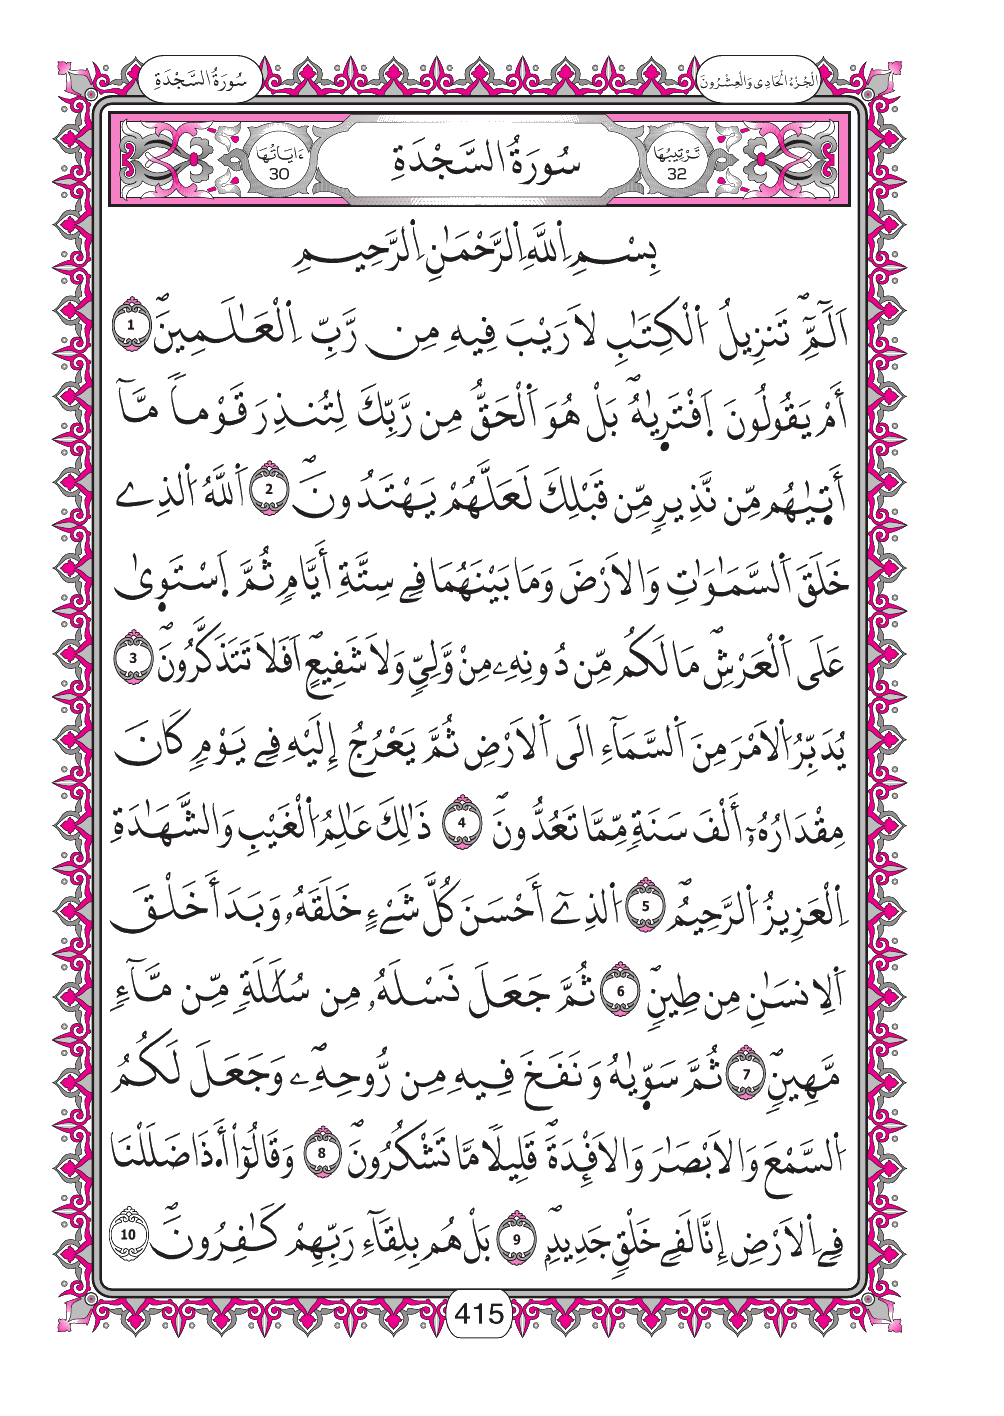 سُورَةُ السَّجْدَةِ
الْجُزْءُ الْحَادِي وَالْعِشْرُونَ
تَرْتِيبُهَا 32
سُورَةُ السَّجْدَةِ
ءَايَاتُهَا 30
بِسْمِ اِللَّهِ اِلرَّحْمَٰنِ اِلرَّحِيمِ
أَلَٓمِّٓۖ تَنزِيلُ اُلْكِتَٰبِ لَا رَيْبَ فِيهِ مِن رَّبِّ اِلْعَٰلَمِينَۖ 1
أَمْ يَقُولُونَ اَفْتَر۪يٰهُۖ بَلْ هُوَ اَلْحَقُّ مِن رَّبِّكَ لِتُنذِرَ قَوْماٗ مَّآ
أَت۪يٰهُم مِّن نَّذِيرٖ مِّن قَبْلِكَ لَعَلَّهُمْ يَهْتَدُونَۖ 2 اَللَّهُ اُلذِے
خَلَقَ اَلسَّمَٰوَٰتِ وَالَارْضَ وَمَا بَيْنَهُمَا فِے سِتَّةِ أَيَّامٖ ثُمَّ اَسْتَو۪يٰ
عَلَى اَلْعَرْشِۖ مَا لَكُم مِّن دُونِهِۦ مِنْ وَّلِيّٖ وَلَا شَفِيعٍۖ اَفَلَا تَتَذَكَّرُونَۖ 3
يُدَبِّرُ اُلَامْرَ مِنَ اَلسَّمَآءِ الَى اَلَارْضِ ثُمَّ يَعْرُجُ إِلَيْهِ فِے يَوْمٖ كَانَ
مِقْدَارُهُۥٓ أَلْفَ سَنَةٖ مِّمَّا تَعُدُّونَۖ 4 ذَٰلِكَ عَٰلِمُ اُلْغَيْبِ وَالشَّهَٰدَةِ
اِلْعَزِيزُ اُلرَّحِيمُۖ 5 اُلذِےٓ أَحْسَنَ كُلَّ شَےْءٍ خَلَقَهُۥ وَبَدَأَ خَلْقَ
اَلِانسَٰنِ مِن طِينٖۖ 6 ثُمَّ جَعَلَ نَسْلَهُۥ مِن سُلَٰلَةٖ مِّن مَّآءٖ
مَّهِينٖۖ 7 ثُمَّ سَوّ۪يٰهُ وَنَفَخَ فِيهِ مِن رُّوحِهِۦۖ وَجَعَلَ لَكُمُ
اُلسَّمْعَ وَالَابْصَٰرَ وَالَافْـِٕدَةَۖ قَلِيلاٗ مَّا تَشْكُرُونَۖ 8 وَقَالُوٓاْ أَ۟ذَا ضَلَلْنَا
فِے اِلَارْضِ إِنَّا لَفِے خَلْقٖ جَدِيدٍۖ 9 بَلْ هُم بِلِقَآءِ رَبِّهِمْ كَٰفِرُونَۖ 10
415